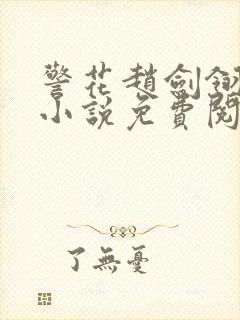 警花趙劍釵
小説免費閱
了無憂